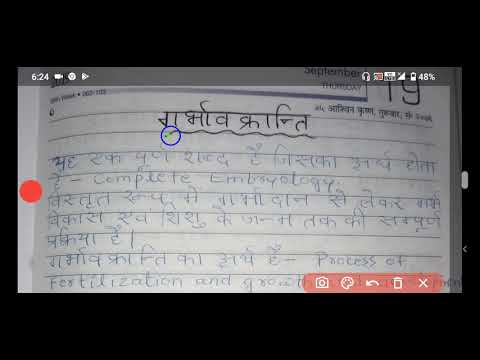 6:24
48%
September
THURSDAY
19
गर्भावक्रान्ति
यह एक पूर्ण शब्द है जिसका अर्थ होता
है - Complete Embryology,
विस्तृत रूप में गर्भादान से लेकर गर्भ
विकास एवं शिशु के जन्म तक की सम्पूर्ण
प्रक्रिया है।
गर्भावक्रान्ति का अर्थ है - Process of
Fertilization and growth